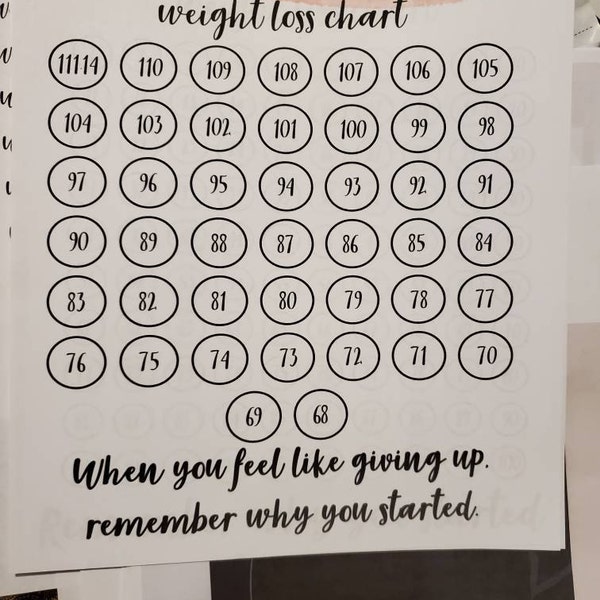 weight loss chart
111.14 110 109 108 107 106 105
104 103 102 101 100 99 98
97 96 95 94 93 92 91
90 89 88 87 86 85 84
83 82 81 80 79 78 77
76 75 74 73 72 71 70
69 68
When you feel like giving up.
remember why you started.